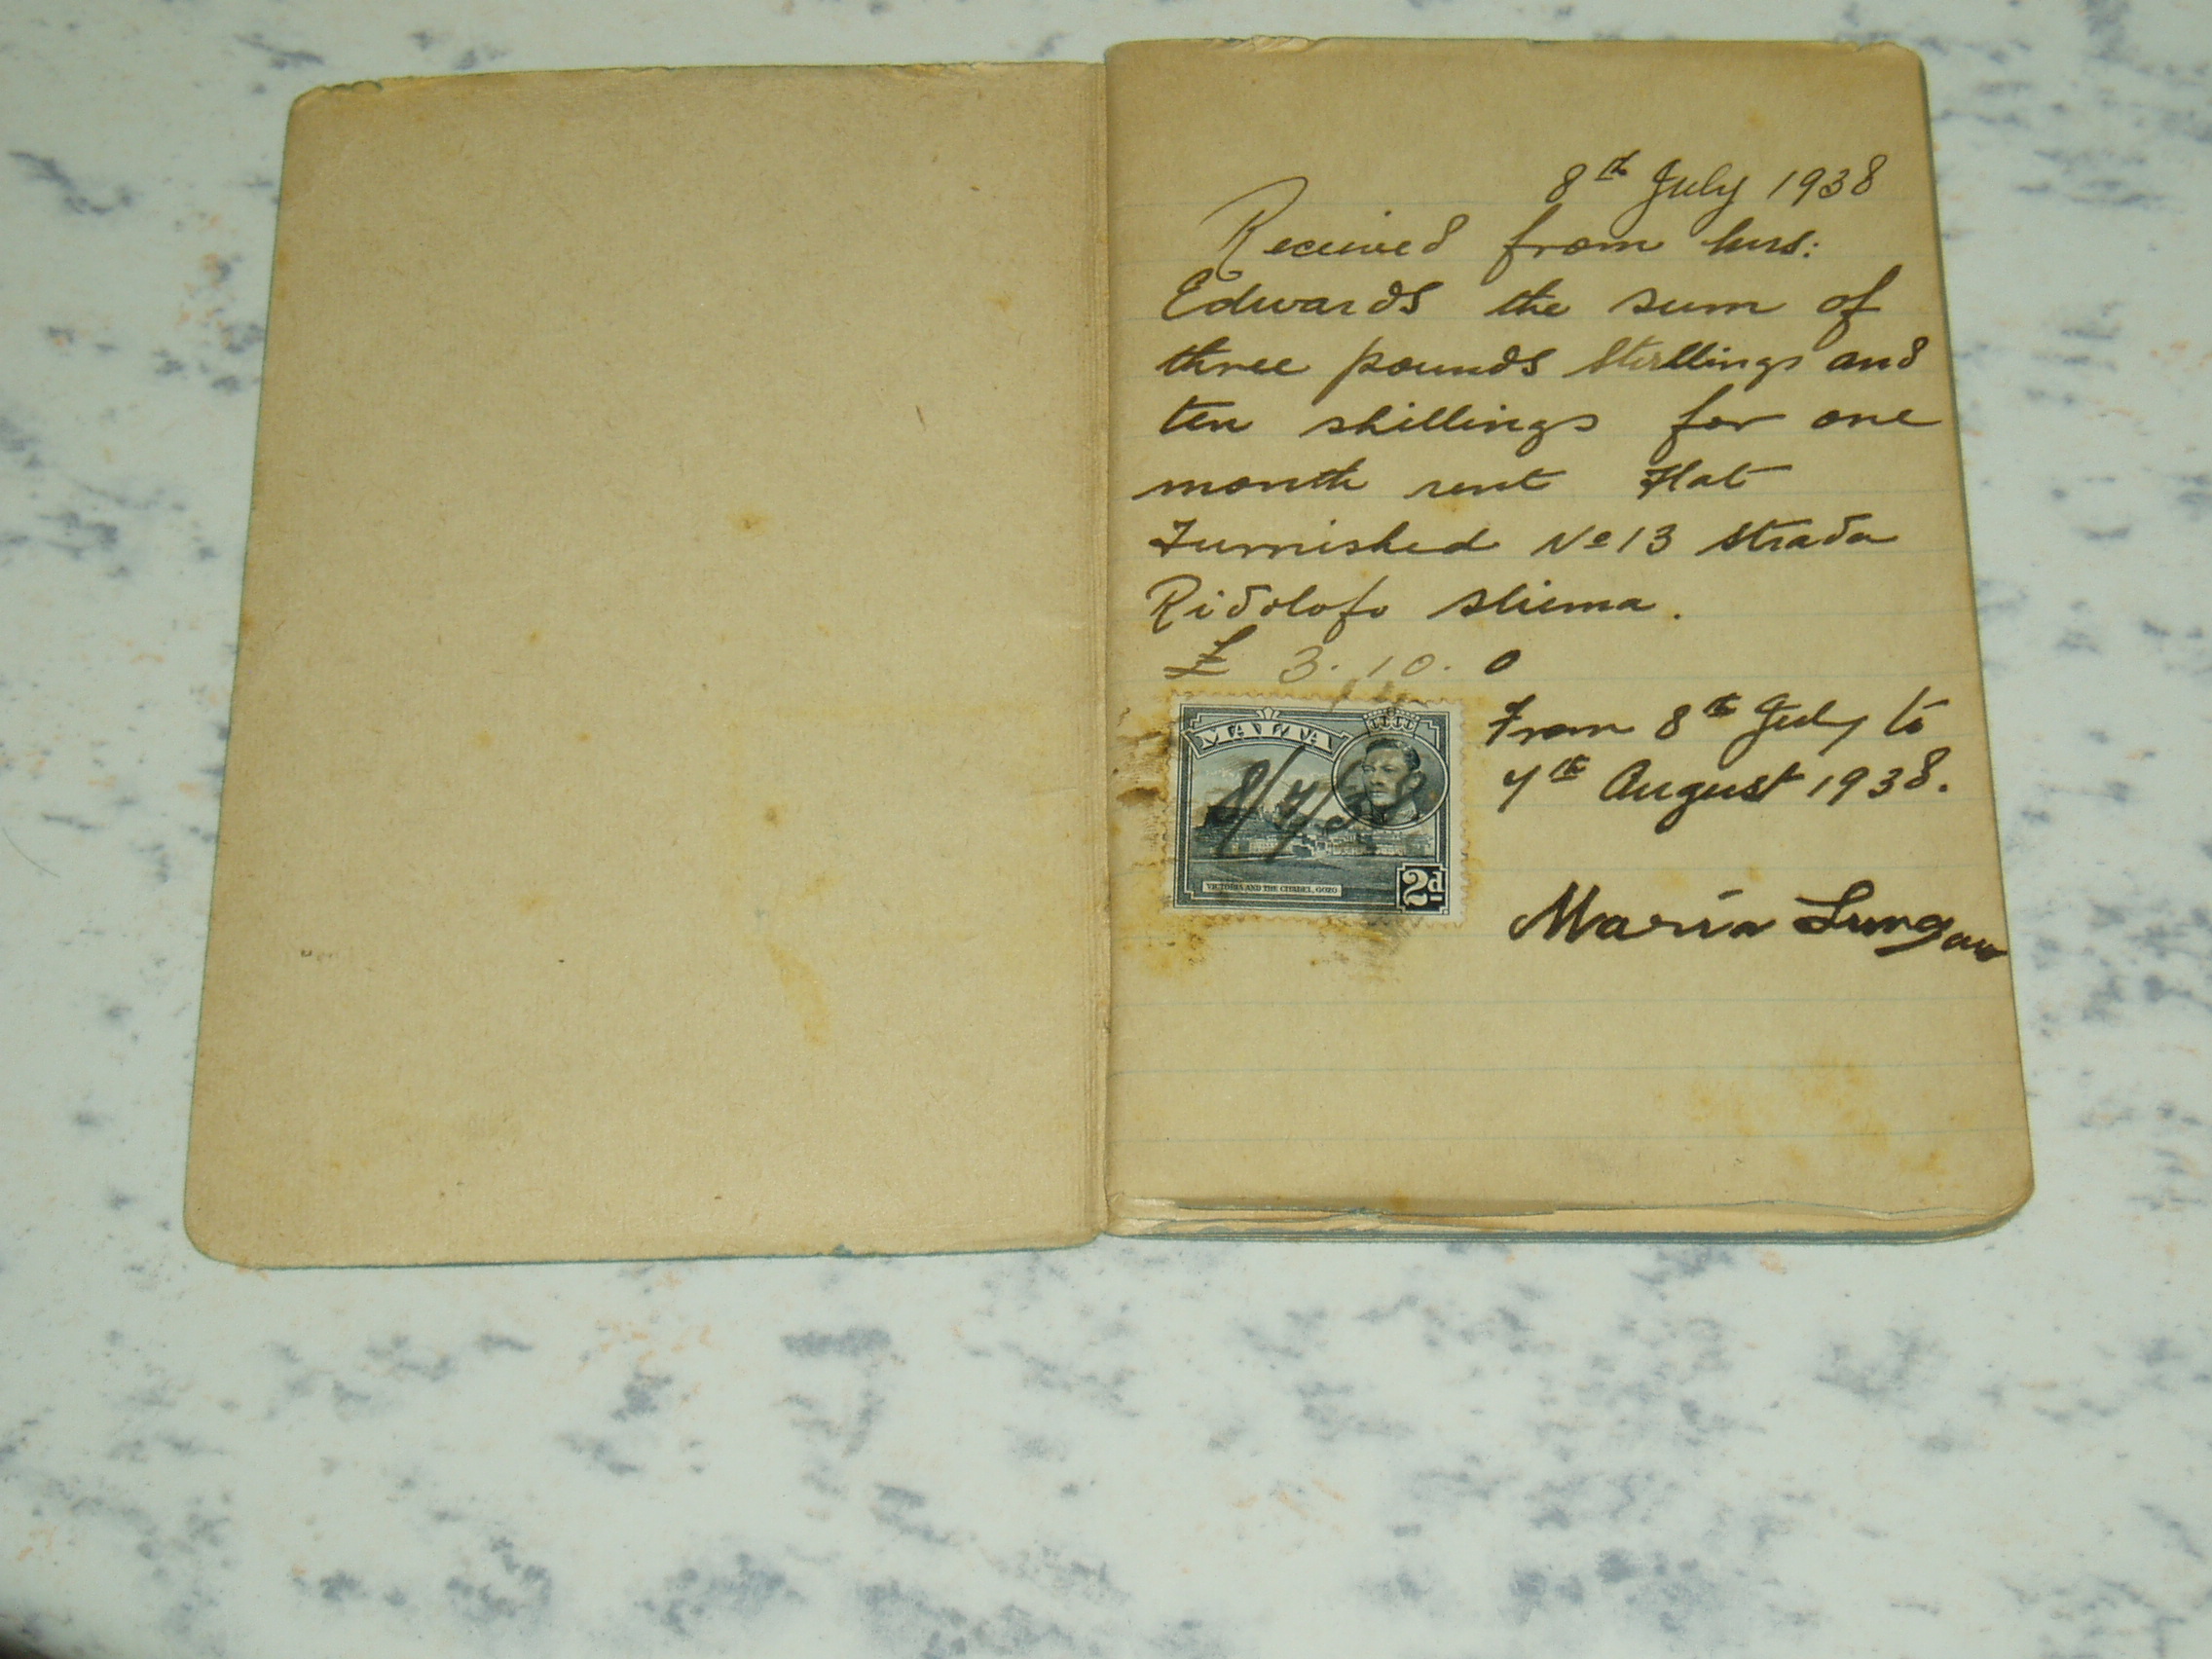 8th July 1938
Received from Mrs:
Edwards the sum of
three pounds Sterllings and
ten shillings for one
month rent Flat
Furnished No 13 Strada
Ridolfo Sliema.
£ 3. 10. 0
MALTA
8/7/38
VICTORIA AND THE CITADEL, GOZO
2d
From 8th July to
7th August 1938.
Maria